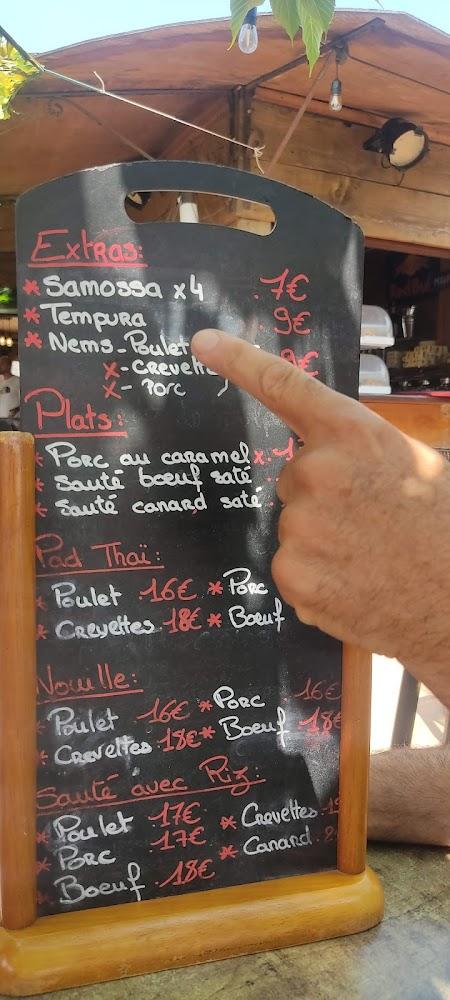 Extras:
* Samossa x4 7€
* Tempura 9€
* Nems - Poulet 9€
x - Crevette
x - Porc
Plats:
* Porc au caramel x.
* Sauté boeuf saté
* Sauté canard saté
Pad Thaï:
* Poulet 16€ * Porc
* Crevettes 18€ * Boeuf
Nouille:
* Poulet 16€ * Porc 16€
* Crevettes 18€ * Boeuf 18€
Sauté avec Riz:
* Poulet 17€ * Crevettes
* Porc 17€ * Canard
* Boeuf 18€